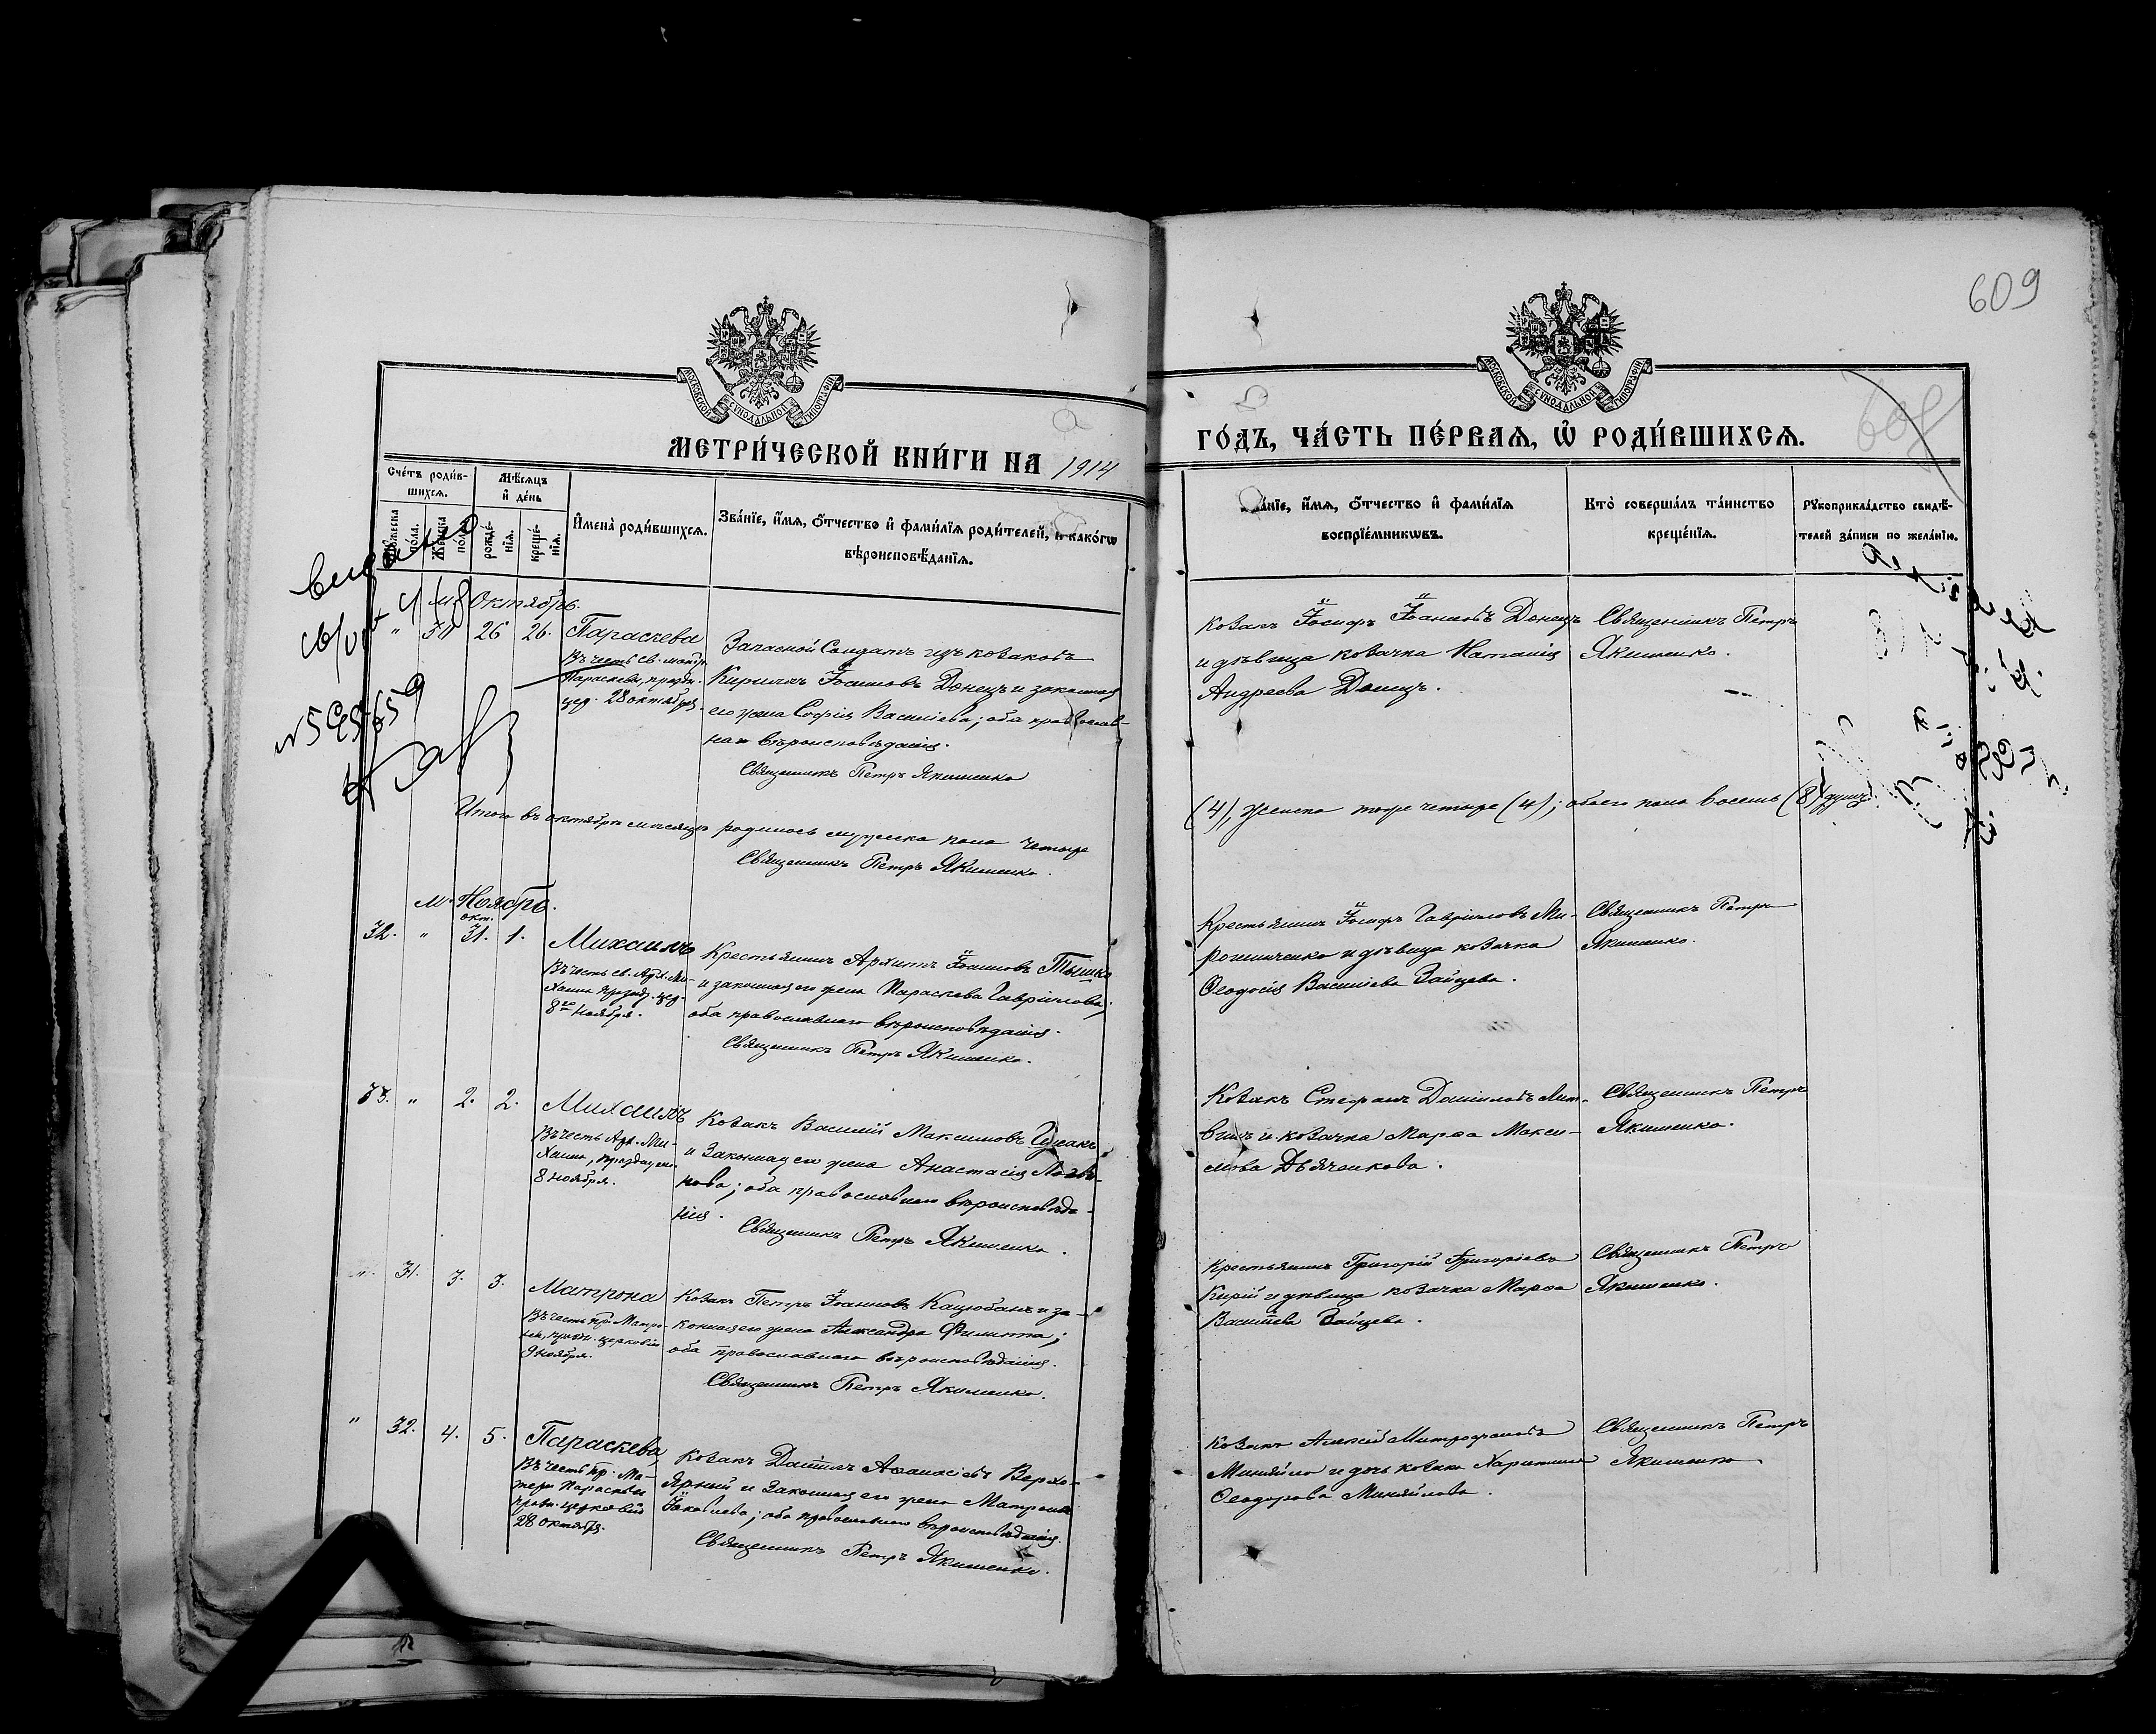 609
МОСКОВСКОЙ СѴНОДАЛЬНОЙ ТИПОГРАФІИ
МОСКОВСКОЙ СѴНОДАЛЬНОЙ ТИПОГРАФІИ
МЕТРИ́ЧЕСКОЙ КНИ́ГИ НА 1914
ГО́ДЪ, ЧА́СТЬ ПЕ́РВАЯ, Ѡ РОДИ́ВШИХСЯ.
Сче́тъ роди́в-
шихся.
Мѣ́сяцъ
и де́нь
Му́жеска
по́ла.
Же́нска
по́ла.
рожде́-
нія.
креще́-
нія.
Имена̀ роди́вшихся.
Зва́ніе, и́мя, о́тчество и фами́лія роди́телей, и како́гѡ
вѣроисповѣ́данія.
Зва́ніе, и́мя, о́тчество и фами́лія
воспріе́мникѡвъ.
Кто̀ соверша́лъ та́инство
креще́нія.
Рукоприкла́дство свидѣ́-
телей за́писи по жела́нію.
Октябрь.
" 30 26 26. Параскева
Въ честь св.
Параскевы, праздн.
цер. 28 октября.
Запасной Солдатъ изъ козаковъ
Кириллъ Іосифовъ Донецъ и законная
его жена Софія Васильева; оба православ-
наго вѣроисповѣданія.
Священникъ Петръ Якименко
Козакъ Іосифъ Іоанновъ Донецъ
и дѣвица козачка Наталія
Андреева Донецъ.
Священникъ Петръ
Якименко.
Итого въ октябрѣ мѣсяцѣ родилось мужеска пола четыре
(4), женска тоже четыре (4); обоего пола восемь (8) душъ
Священникъ Петръ Якименко.
М. Ноябрь.
окт.
32. " 31. 1. Михаилъ
Въ честь св. Арх. Ми-
хаила празд. цер.
8го ноября.
Крестьянинъ Архипъ Іоанновъ Тышко
и законная его жена Параскева Гавріилова;
оба православнаго вѣроисповѣданія.
Священникъ Петръ Якименко.
Крестьянинъ Іосифъ Гавріиловъ Ми-
рошниченко и дѣвица козачка
Ѳеодосія Васильева Зайцева.
Священникъ Петръ
Якименко.
33. " 2. 2. Михаилъ
Въ честь Арх. Ми-
хаила, празд. цер.
8 ноября.
Козакъ Василій Максимовъ
и законная его жена Анастасія Логви-
нова; оба православнаго вѣроисповѣда-
нія.
Священникъ Петръ Якименко.
Козакъ Стефанъ Даниловъ Лит-
винъ и козачка Марѳа Макси-
мова Дьяченкова.
Священникъ Петръ
Якименко.
" 31. 3. 3. Матрона
Въ честь пр. Матро-
ны, празн. церковію
9 ноября.
Козакъ Петръ Іоанновъ Кацюбанъ и за-
конная его жена Александра Филиппа;
оба православнаго вѣроисповѣданія.
Священникъ Петръ Якименко.
Крестьянинъ Григорій Григоріевъ
Кирій и дѣвица козачка Марѳа
Васильева Зайцева.
Священникъ Петръ
Якименко.
" 32. 4. 5. Параскева
Въ честь пр. Ма-
тери Параскевы
празн. церковію
28 октября.
Козакъ Даніилъ Аѳанасіевъ Верхо-
ярный и законная его жена Матрона
Іаковлева; оба православнаго вѣроисповѣданія.
Священникъ Петръ Якименко.
Козакъ Алексій Митрофановъ
Миняйло и дочь козака Харитина
Ѳеодорова Миняйлова.
Священникъ Петръ
Якименко